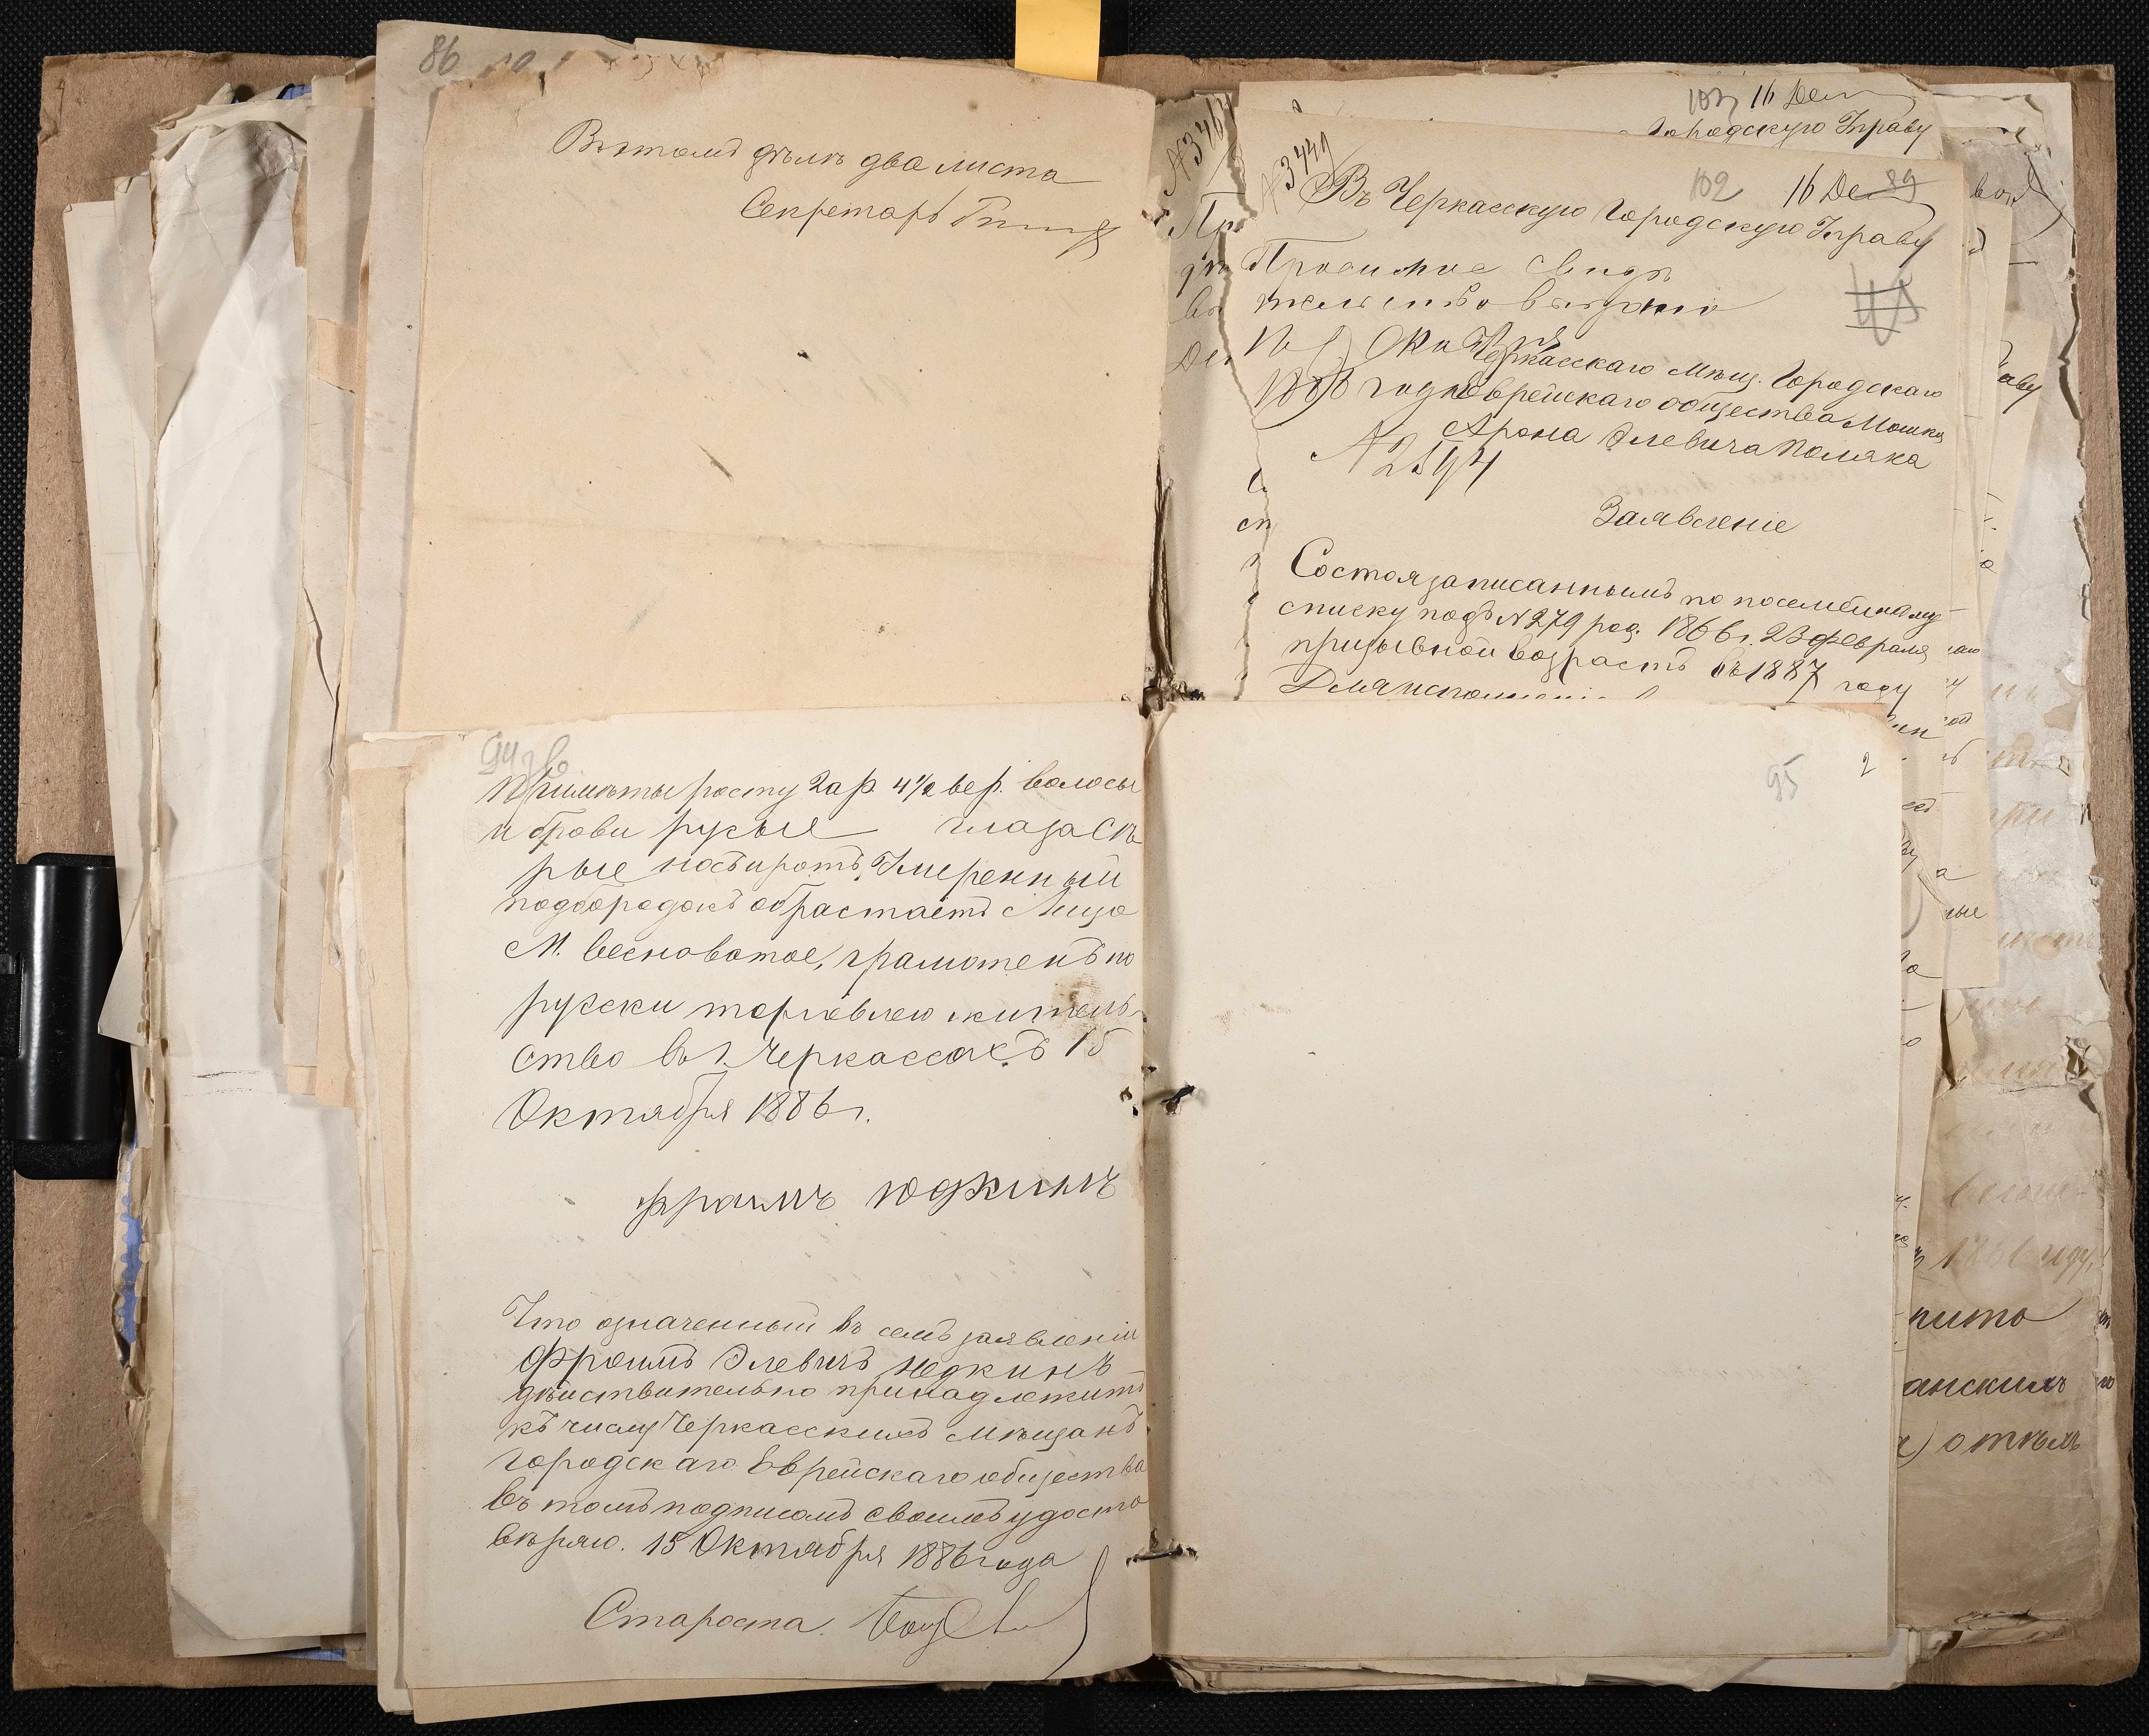 86
Въ этомъ дѣлѣ два листа
Секретарь
103 16 Дек
Городскую Управу
№3449
102 16 Де 89
Въ Черкасскую Городскую Управу
Просимое свидѣ
тельство выдано
Октября
1886 года
№ 2594
Черкасскаго мѣщ. Городскаго
Еврейскаго общества Мошка
Арона Элевича Поляка
Заявленіе
Состоя записаннымъ по посемейному
списку подъ №279 род. 1866 г. 23 февраля
призывной возрастъ въ 1887 году
94
Примѣты росту 2 ар. 4 1/2 вер. волосы
и брови русые глаза сѣ
рые носъ и ротъ Умеренный
подбородокъ обрастаетъ Лицо
М. весноватое, грамотенъ по
русски торговлею житель
ство въ г. Черкассахъ 15
Октября 1886 г.
Фраимъ Юдкинъ
Что означенный въ семъ заявленіи
Фроимъ Элевичъ Юдкинъ
дѣйствительно принадлежитъ
къ числу Черкасскихъ мѣщанъ
Городскаго Еврейскаго общества
въ томъ подписомъ своимъ удосто
вѣряю. 15 Октября 1886 года
Староста.
95
2